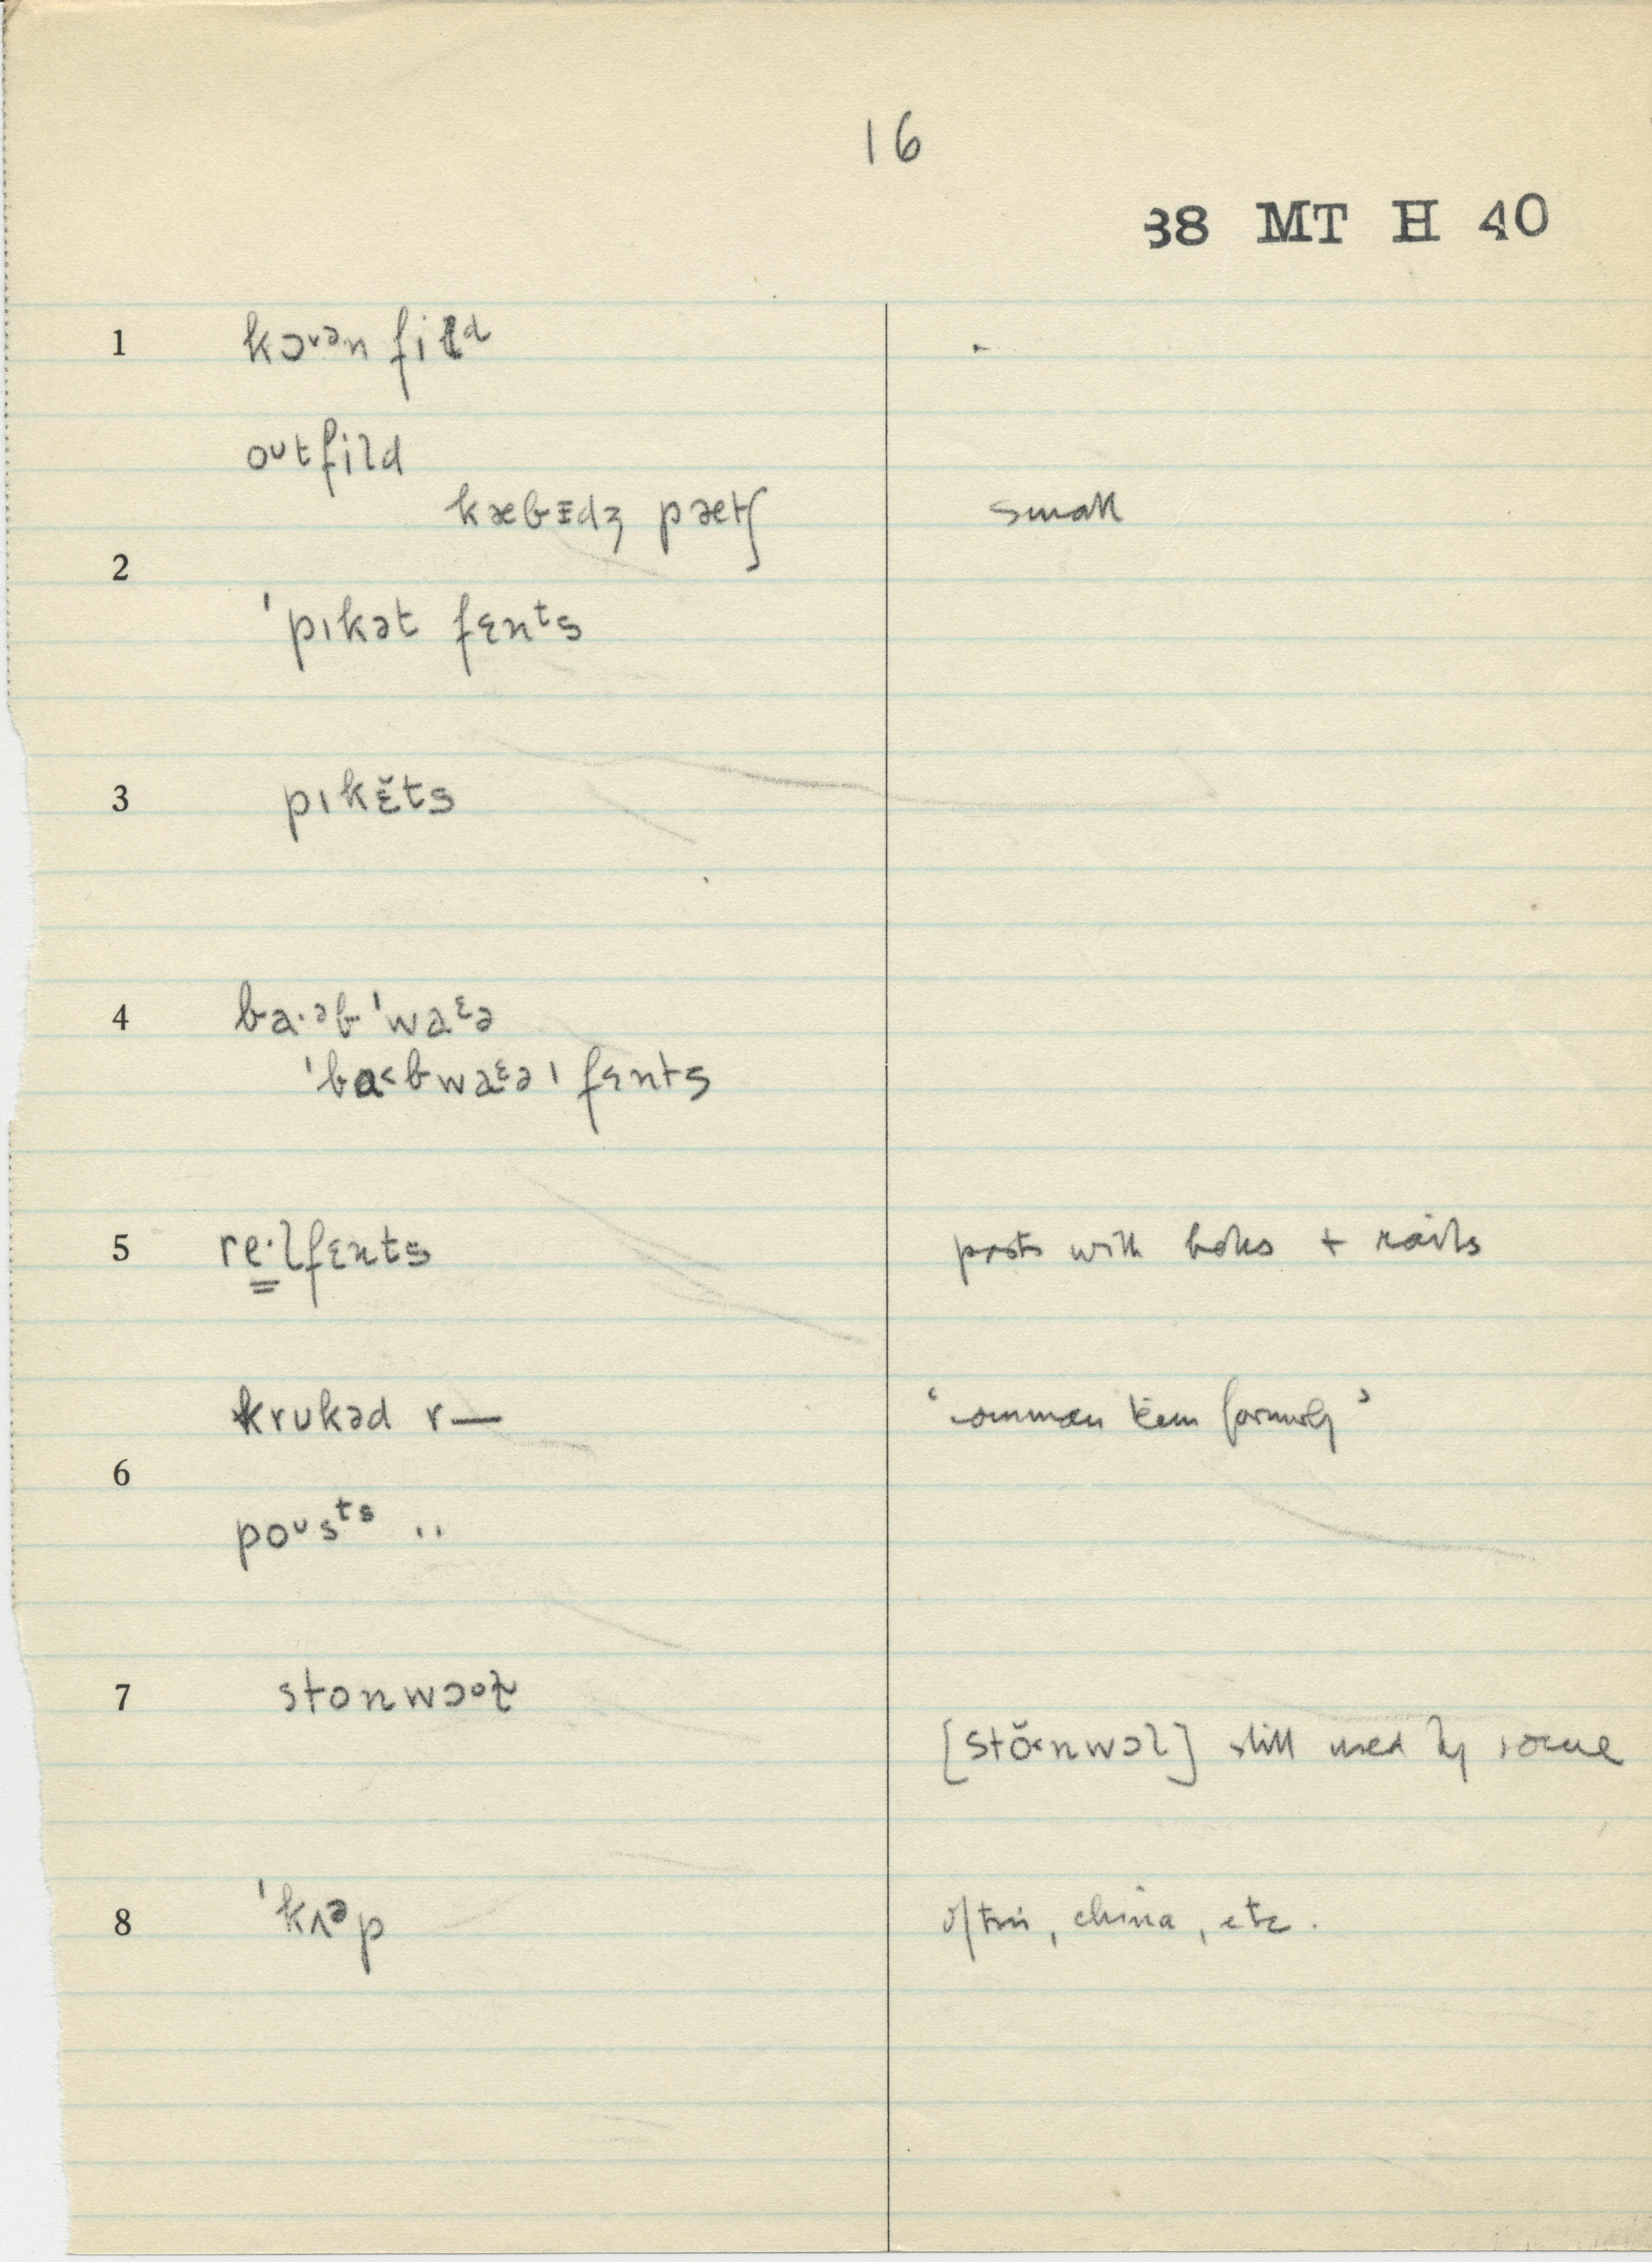 16
38 MT H 40
1 kɔᵛᵊn fiɫᵈ
oᶷtfild
kæbɪdʒ pætʃ small
2
ˈpɪkət fɛnᵗs
3 pɪkɛ̆ts
4 ba·ᵊb ˈwaᵋə
ˈba˂bwaᵋə ˌfɛnts
5 re̳·lfɛnts posts with holes + rails
krukəd r— ‘common term formerly’
6
poᶷsᵗˢ ..
7 stonwɔᵒɫ
[stŏ˂nwɔl] still used by some
8 ˈkʌᵊp of tin, china, etc.